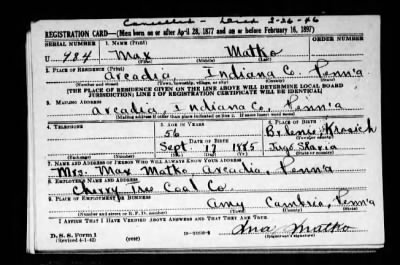 Cancelled - Died 2-26-46
REGISTRATION CARD—(Men born on or after April 28, 1877 and on or before February 16, 1897)
SERIAL NUMBER 1. NAME (Print) ORDER NUMBER
U 484 Max Matko
2. PLACE OF RESIDENCE (Print)
Arcadia, Indiana Co. Penn'a
(Number and street) (Town, township, village, or city) (County) (State)
[THE PLACE OF RESIDENCE GIVEN ON THE LINE ABOVE WILL DETERMINE LOCAL BOARD
JURISDICTION; LINE 2 OF REGISTRATION CERTIFICATE WILL BE IDENTICAL]
3. MAILING ADDRESS
Arcadia, Indiana Co., Penn'a
[Mailing address if other than place indicated on line 2. If same insert word same]
4. TELEPHONE 5. AGE IN YEARS 6. PLACE OF BIRTH
56
DATE OF BIRTH
Sept 17 1885 Jugo Slavia
(Exchange) (Number) (Mo.) (Day) (Yr.) (State or country)
7. NAME AND ADDRESS OF PERSON WHO WILL ALWAYS KNOW YOUR ADDRESS
Mrs. Max Matko, Arcadia, Penn'a
8. EMPLOYER'S NAME AND ADDRESS
Cherry Tree Coal Co.
9. PLACE OF EMPLOYMENT OR BUSINESS
Amy Cambria, Penn'a
(Number and street or R. F. D. number) (Town) (County) (State)
I AFFIRM THAT I HAVE VERIFIED ABOVE ANSWERS AND THAT THEY ARE TRUE.
D. S. S. Form 1
(Revised 4-1-42) (over) Matko
(Registrant's signature)